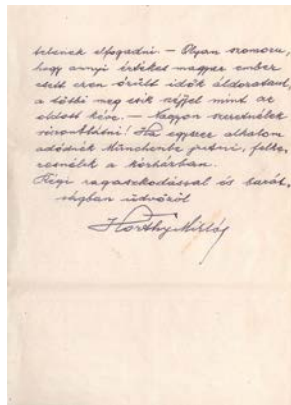 telenek elfogadni. – Olyan szomorú,
hogy annyi értékes magyar ember
esett ezen őrült idők áldozatául,
a többi meg csik széjjel mint az
oldott kéve. – Nagyon szeretnélek
viszontlátni! Ha egyszer alkalom
adódnék Münchenbe jutni, felke-
resnélek a kórházban.
Régi ragaszkodással és barát-
ságban üdvözöl
Horthy Miklós